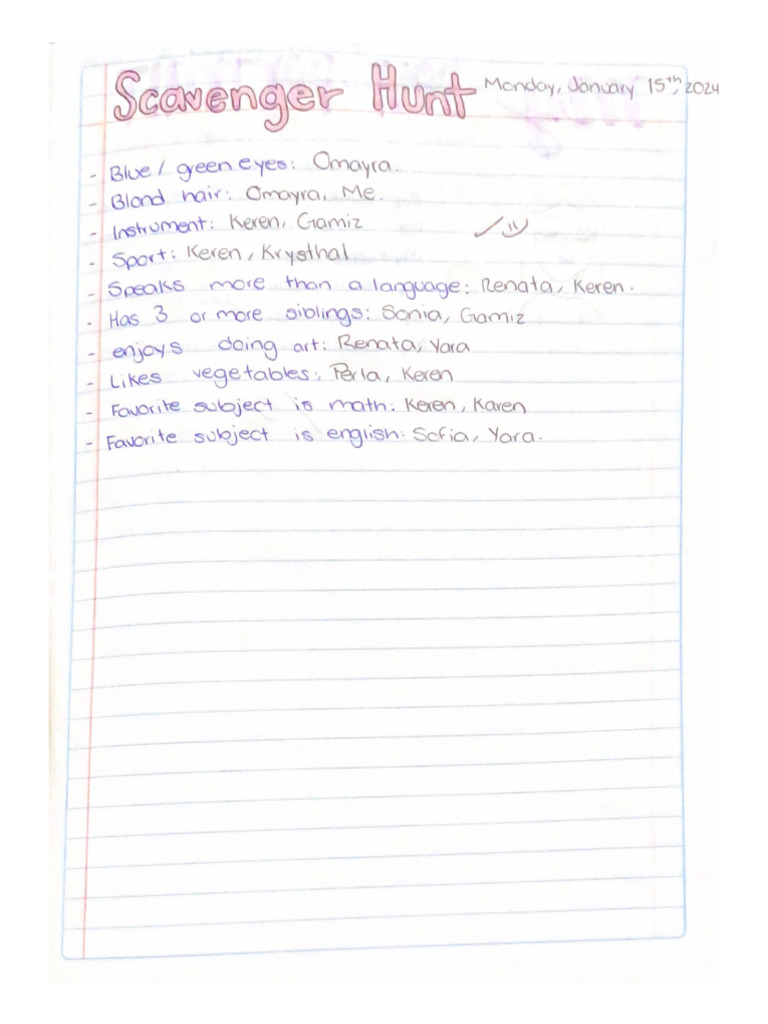 Scavenger Hunt Monday, January 15th, 2024
- Blue / green eyes: Omayra.
- Blond hair: Omayra, Me.
- Instrument: Keren, Gamiz
- Sport: Keren, Krysthal
- Speaks more than a language: Renata, Keren.
- Has 3 or more siblings: Sonia, Gamiz
- enjoys doing art: Renata, Yara
- Likes vegetables: Perla, Keren
- Favorite subject is math: Keren, Karen
- Favorite subject is english: Sofia, Yara.